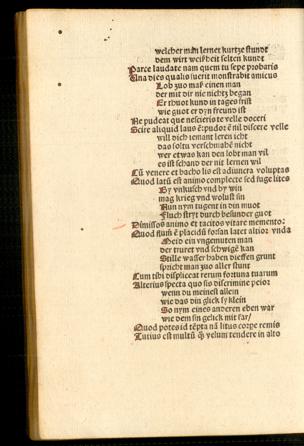 welcher man lernet kurtze stundt
dem wirt weißheit selten kundt
Parce laudate nam quem tu sepe probaris
Una dies qualis fuerit monstrabit amicus
Lob zuo maß einen man
der mit dir nie nichtz began
Er thuot kund in tages frist
wie guot er dyn freund ist
Ne pudeat que nescieris te velle doceri
Scire aliquid laus ē: pudor ē nil discere velle
will dich iemant leren icht
das soltu verschmahē nicht
wer etwas kan den lobt man vil
es ist schand der nit lernen wil
Cū venere et bacho lis est adiuncta voluptas
Quod lautū est animo complecte sed fuge lites
By vnkusch vnd by win
mag krieg vnd wolust sin
Nun nym tugent in din muot
fluch stryt durch besunder guot
Dimissos animo et tacitos vitare memento
Quod flumē ē placidū forsan latet altior vnda
Meid ein vngemuten man
der truret vnd schwigē kan
Stille wasser haben dieffen grunt
spricht man zuo aller stunt
Cum tibi displiceat rerum fortuna tuarum
Alterius specta quo sis discrimine peior
wenn du meinest allein
wie das din glick sy klein
So nym eines anderen eben war
wie dem sin gelick mit far/
Quod potes id tēpta nā litus corpe remis
Tutius est multū q̄ velum tendere in alto